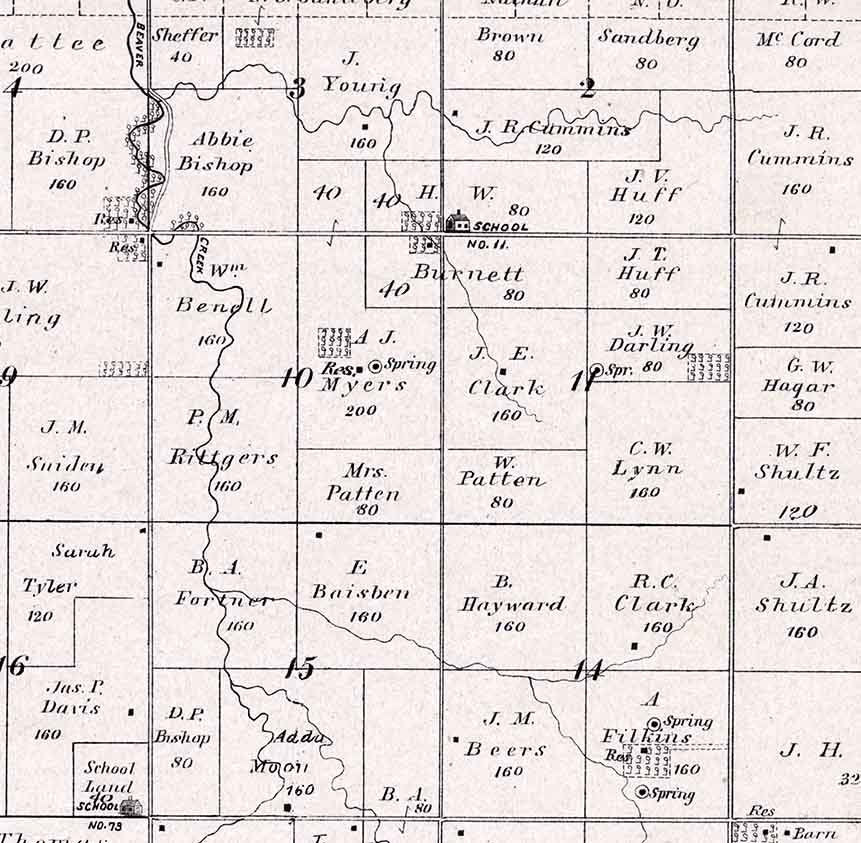 BEAVER
Sheffer
40
Nathan
N. O.
attee
200
4
J.
Young
3
160
Brown
80
Sandberg
80
2
Mc Cord
80
D. P.
Bishop
160
Abbie
Bishop
160
J. R. Cummins
120
J. R.
Cummins
160
40
40
H. W.
80
SCHOOL
NO. 11.
Burnett
40
80
J. V.
Huff
120
Res
Res
CREEK
Wm
160
J. T.
Huff
80
J. R.
Cummins
120
J. W.
ling
9
A J.
Res.
Spring
Myers
200
10
J. E.
Clark
160
J. W.
Darling
Spr. 80
11
G. W.
Hagar
80
J. M.
160
P. M.
Rittgers
160
Mrs.
Patten
80
W.
Patten
80
C. W.
Lynn
160
W. F.
Shultz
120
Sarah
Tyler
120
16
B. A.
Fortner
160
E
Baisben
160
15
B.
Hayward
160
R. C.
Clark
160
14
J. A.
Shultz
160
Jas. P.
Davis
160
School
Land
40
SCHOOL
NO. 73
D. P.
Bishop
80
Adda
Moon
160
B. A.
80
J. M.
Beers
160
A
Spring
Filkins
Res
160
Spring
J. H.
32
Res
Barn